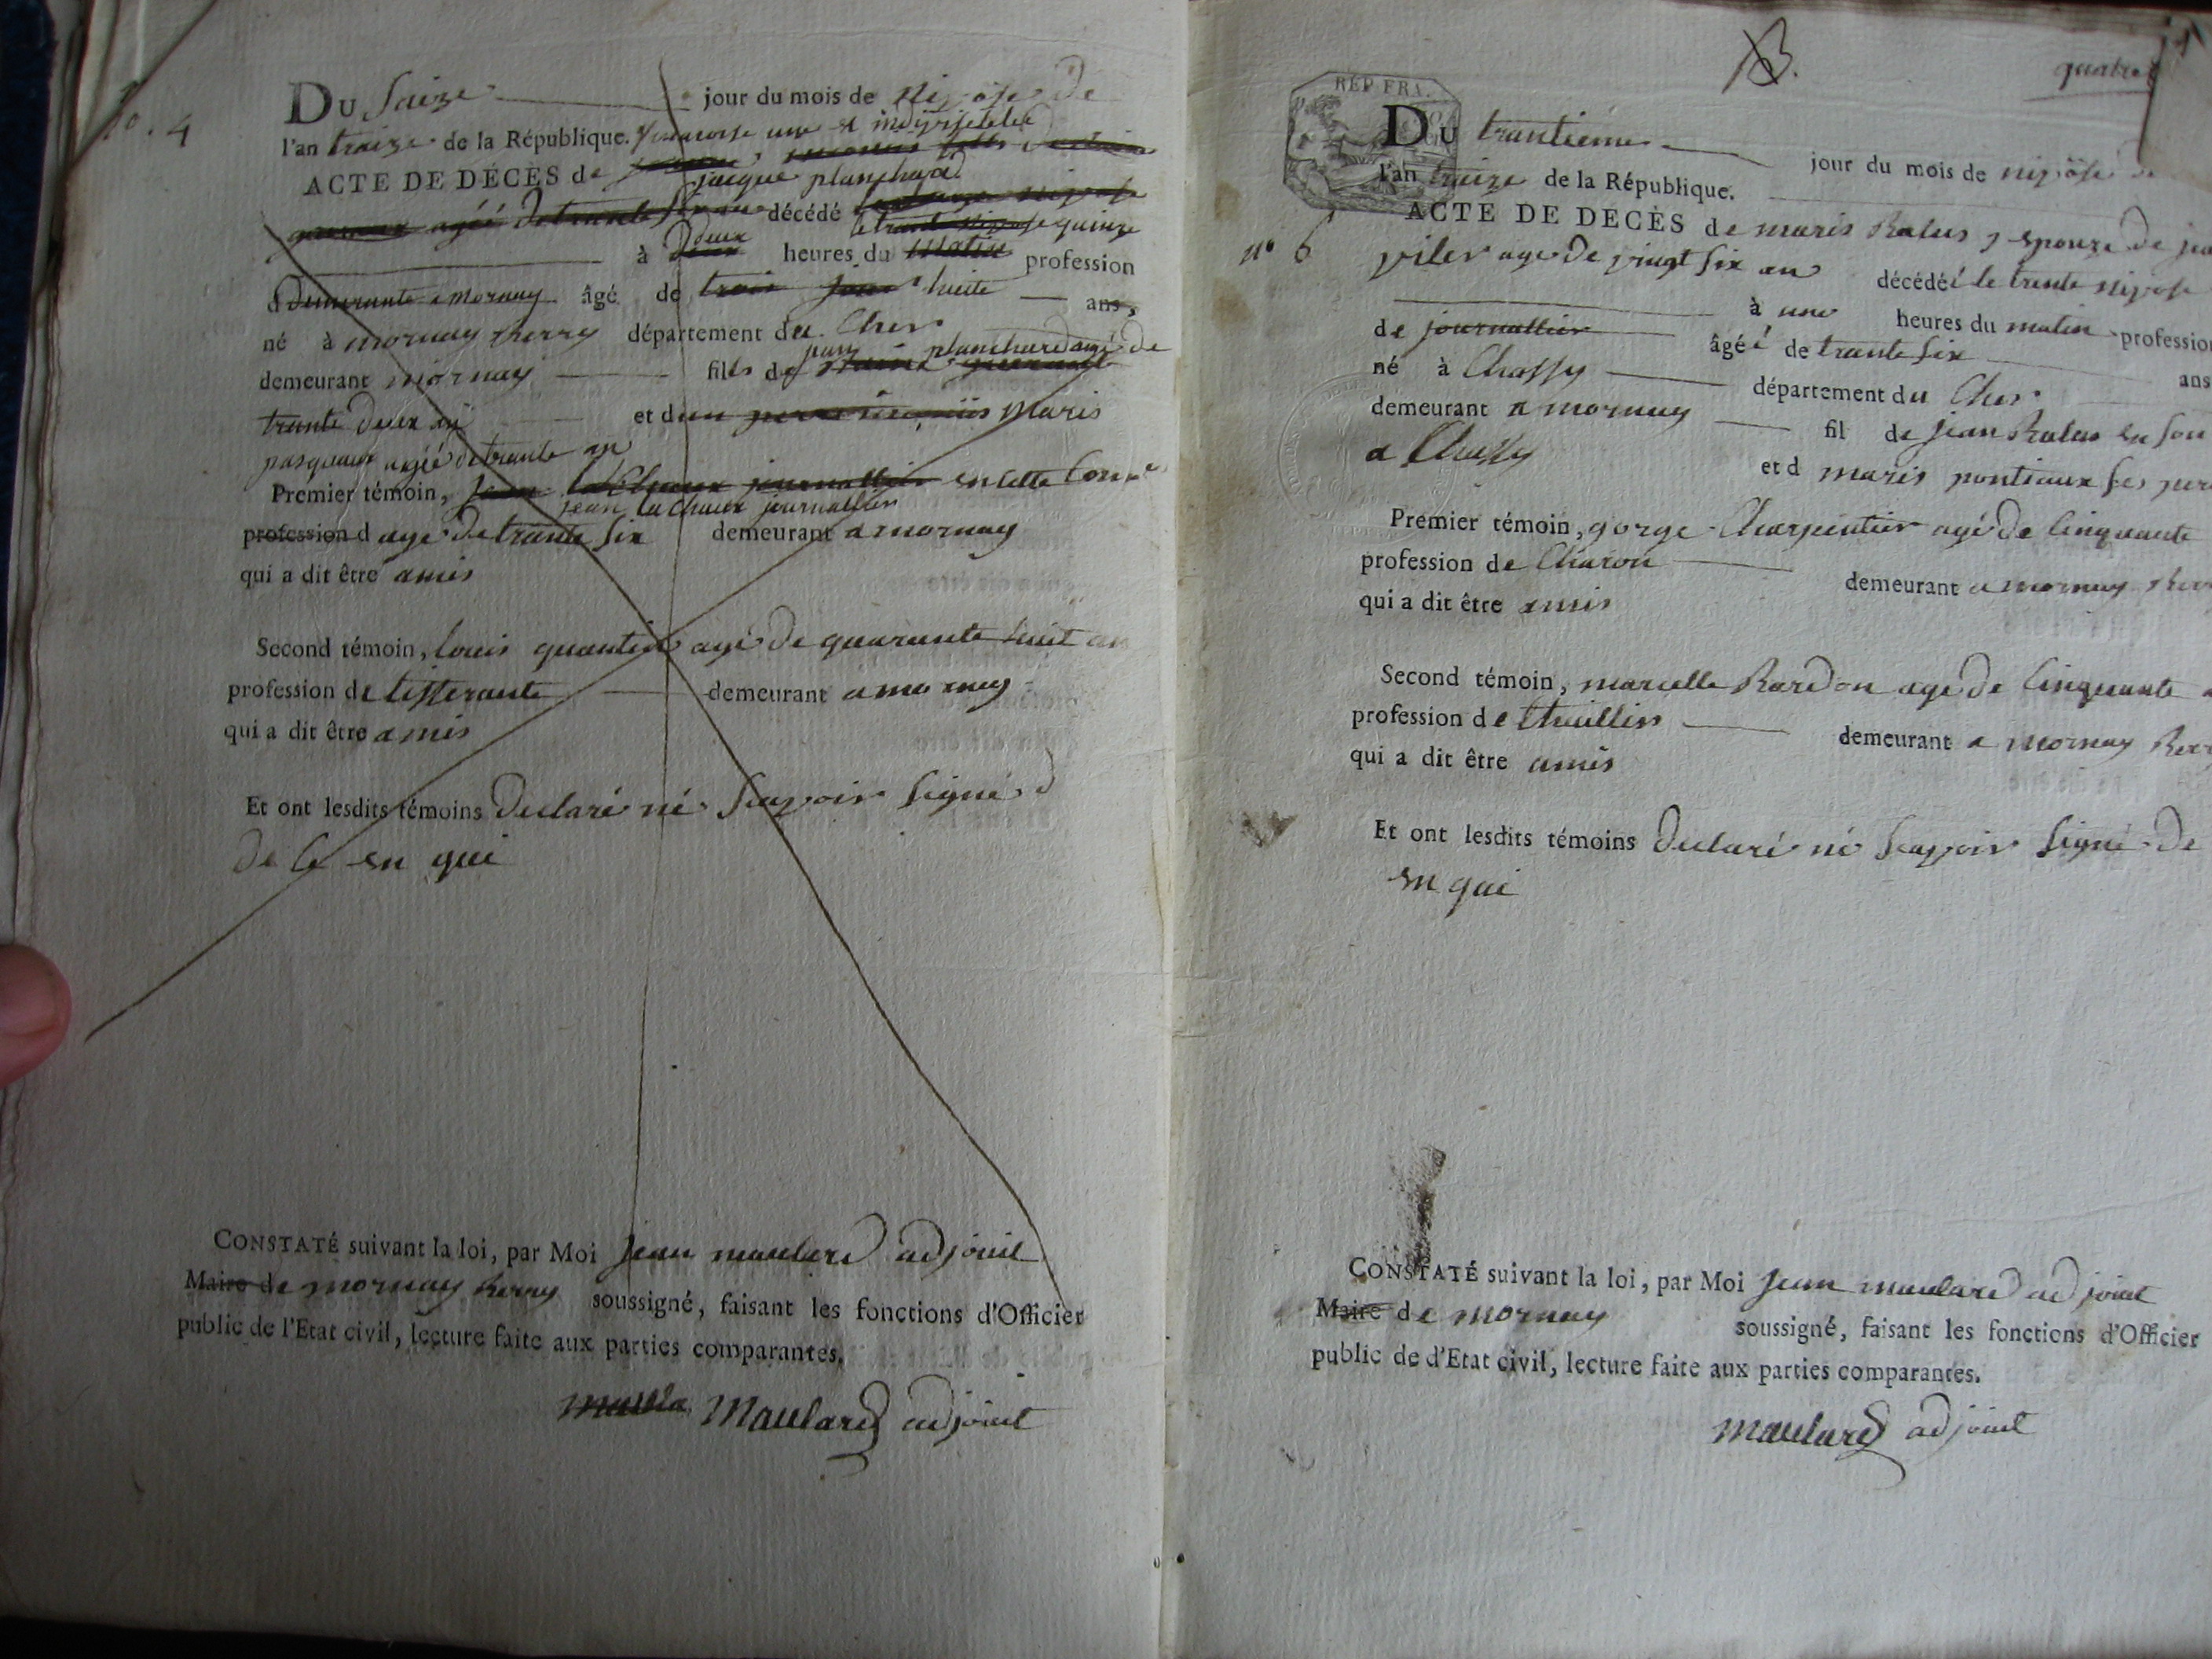 no. 4
DU Saize jour du mois de nivose de
l'an traize de la République.
ACTE DE DÉCÈS de
jacque planchard
agéé de trante six an décédé
le trante nivose quinze
à deux heures du matin profession
d demurante a Mornay âgé de trois jour huite ans,
né à mornay berry département du Cher
jean planchard agé de
demeurant mornay fils de
trante deux an et d un perre inconnus Maris
pasquaux agéé de trante an
Premier témoin, jean lachaux journallier en cette
jean lachaux journallier
profession d age de trante six demeurant a mornay
qui a dit être amis
Second témoin, louis quantin agé de quarante huit an
profession de tisserante demeurant a mornay
qui a dit être amis
Et ont lesdits témoins declaré né scavoir signé
de ce en qui
CONSTATÉ suivant la loi, par Moi jean maulard adjoint
Maire de mornay berry soussigné, faisant les fonctions d'Officier
public de l'Etat civil, lecture faite aux parties comparantes.
Maulard adjoint
quatre
RÉP. FRA.
DU trantieme jour du mois de nivöse de
l'an traize de la République.
ACTE DE DÉCÈS de maris Ratus, epouze de
no 6 viler age de vingt six an décédéé le trente nivose
à une heures du matin profession
de journallier âgéé de trante six ans
né à Chassy département du Cher
demeurant a mornay fil de jean Ratus en son
a Chassy et d maris pontiaux ses
Premier témoin, gorge Charpentier agé de cinquante
profession de Charon demeurant a mornay
qui a dit être amis
Second témoin, marcelle Bardon age de cinquante
profession de thuillier demeurant a mornay
qui a dit être amis
Et ont lesdits témoins declaré né scavoir signé de
en qui
CONSTATÉ suivant la loi, par Moi jean maulard adjoint
Maire de mornay soussigné, faisant les fonctions d'Officier
public de d'Etat civil, lecture faite aux parties comparantes.
maulard adjoint